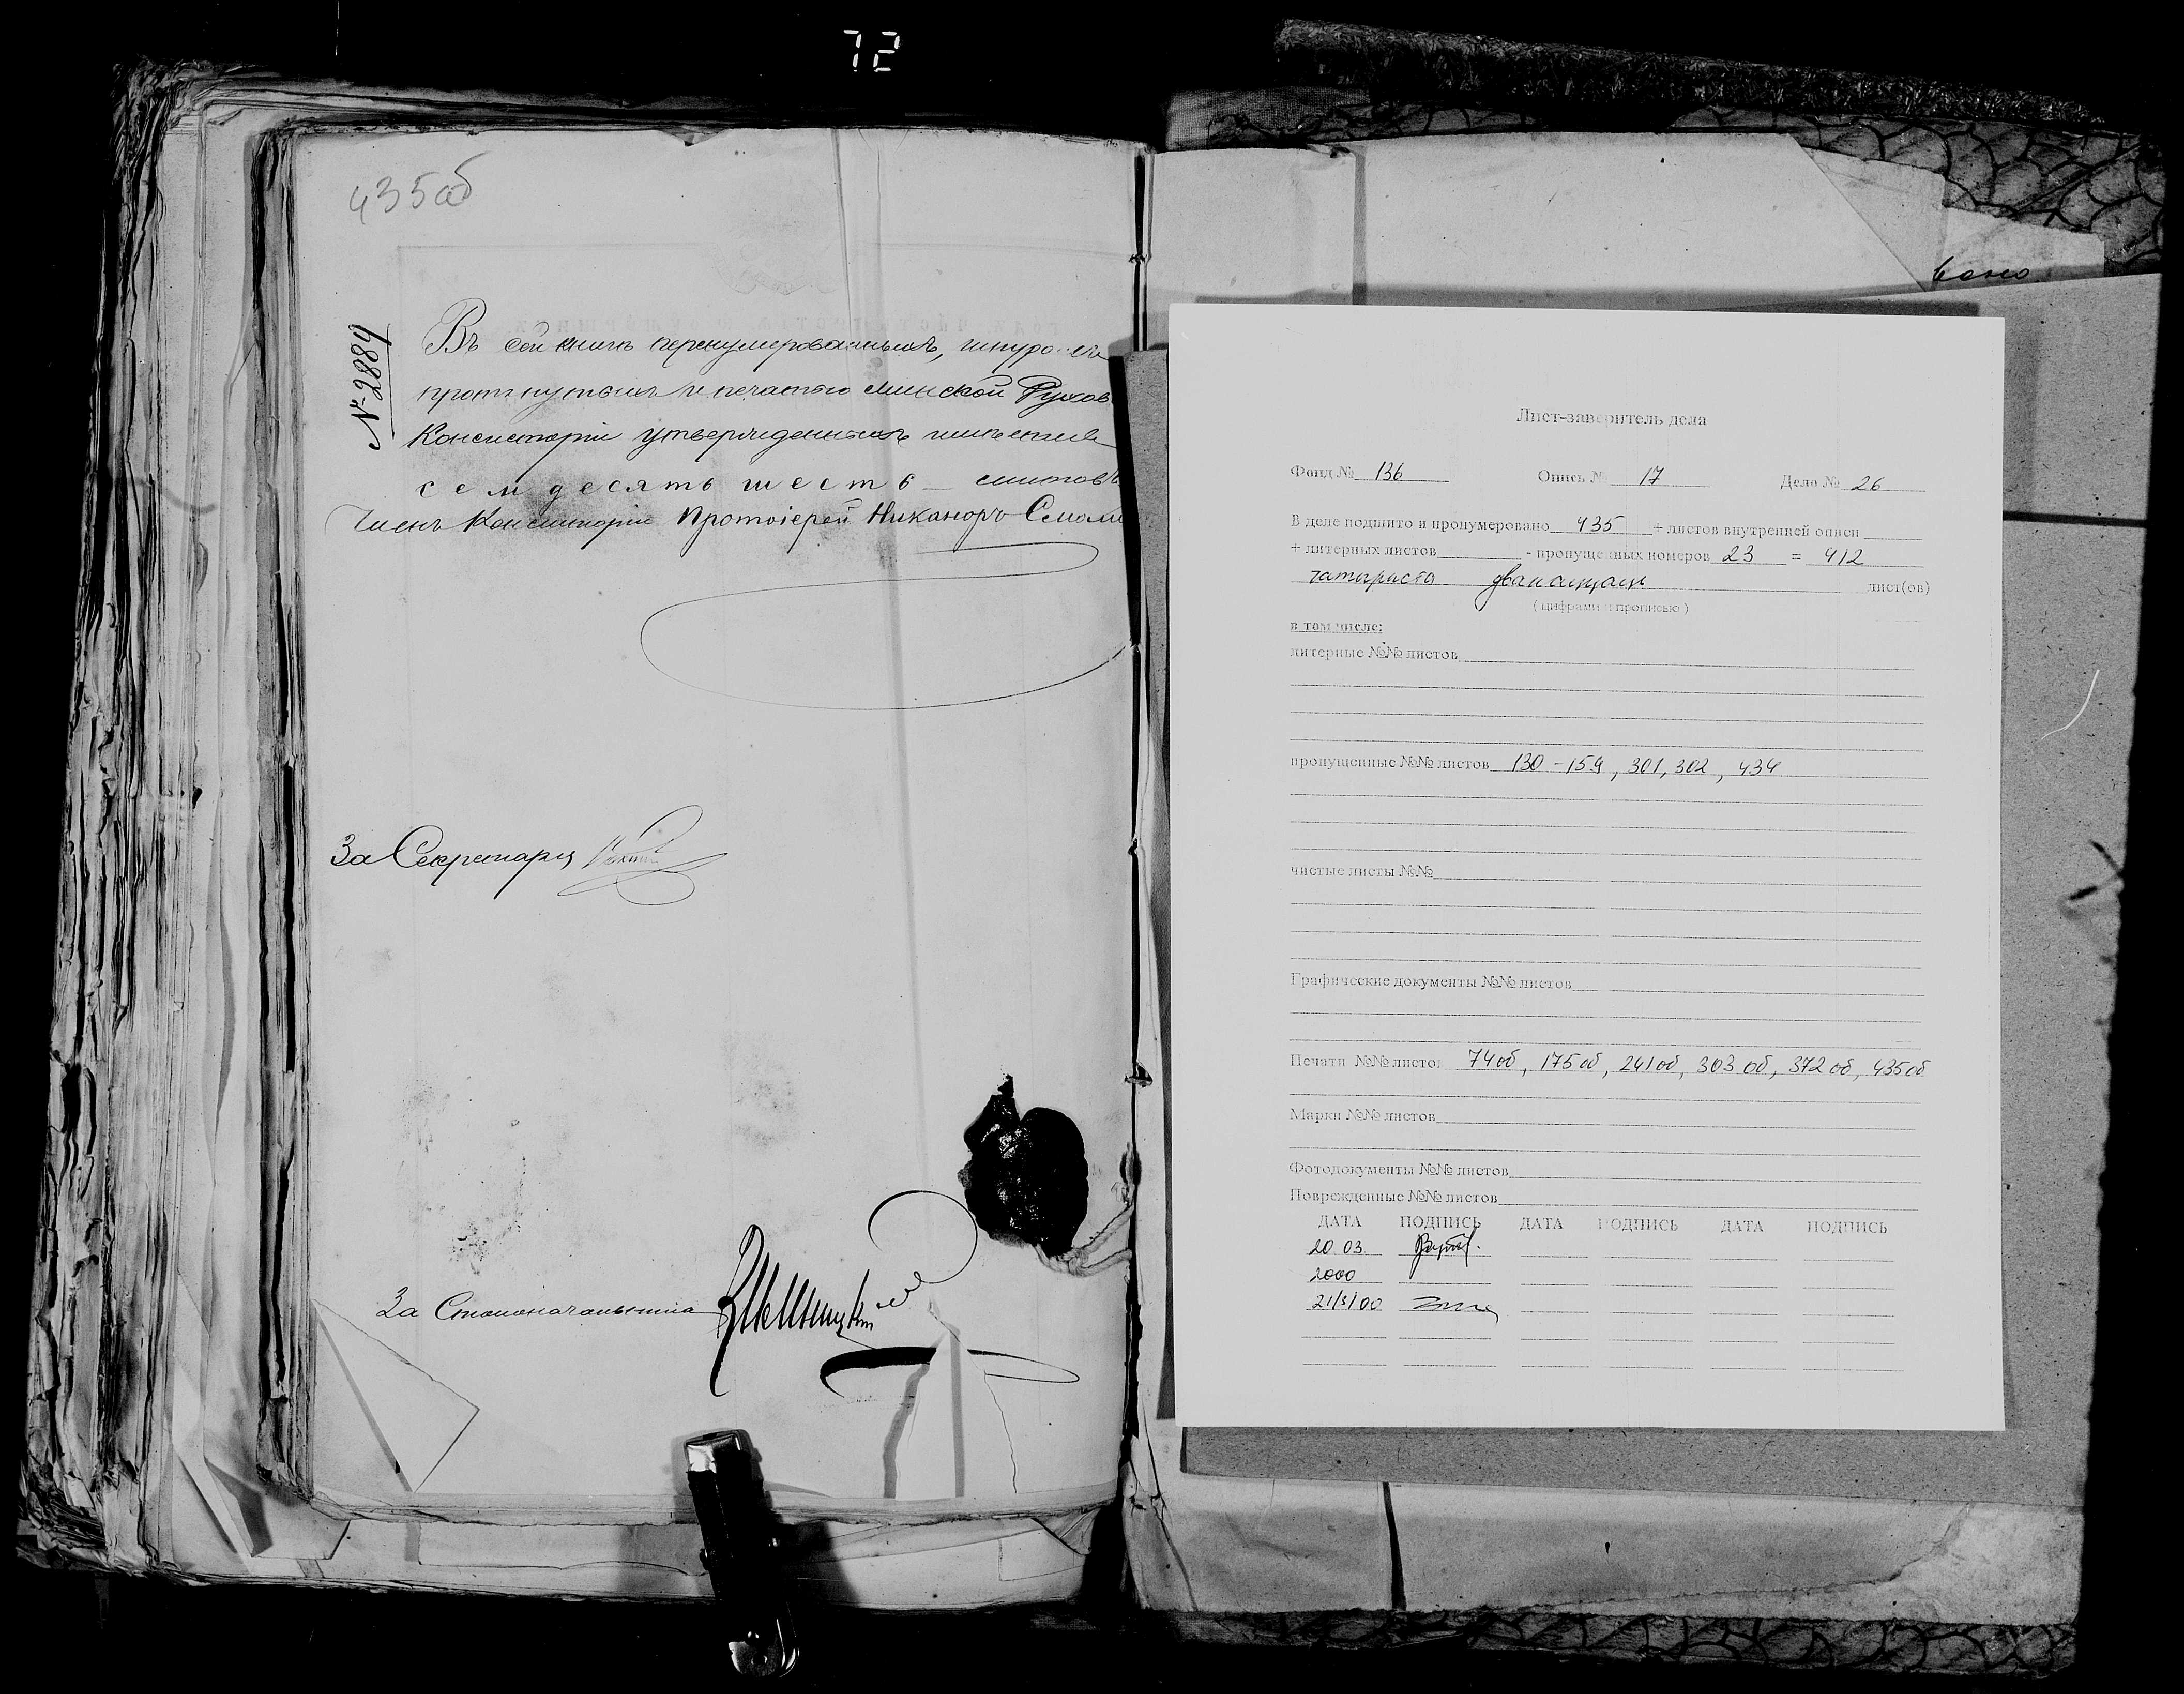 72
435об
№ 2884
Въ сей книгѣ перенумерованныхъ, шнуромъ
протянутыхъ и печатью Минской Духов
Консисторіи утвержденныхъ
семдесять шесть листовъ
Членъ Консисторіи Протоіерей Никаноръ Смоли
За Секретаря
За Столоначальника
вано
Лист-заверитель дела
Фонд № 136 Опись № 17 Дело № 26
В деле подшито и пронумеровано 435 + листов внутренней описи
+ литерных листов - пропущенных номеров 23 = 412
чатырыста дванаццаць лист(ов)
( цифрами и прописью )
в том числе:
литерные №№ листов
пропущенные №№ листов 130 - 159, 301, 302, 434
чистые листы №№
Графические документы №№ листов
Печати №№ листов 74об, 175об, 241об, 303об, 372об, 435об
Марки №№ листов
Фотодокументы №№ листов
Поврежденные №№ листов
ДАТА ПОДПИСЬ ДАТА ПОДПИСЬ ДАТА ПОДПИСЬ
20 03
2000
21/3/00